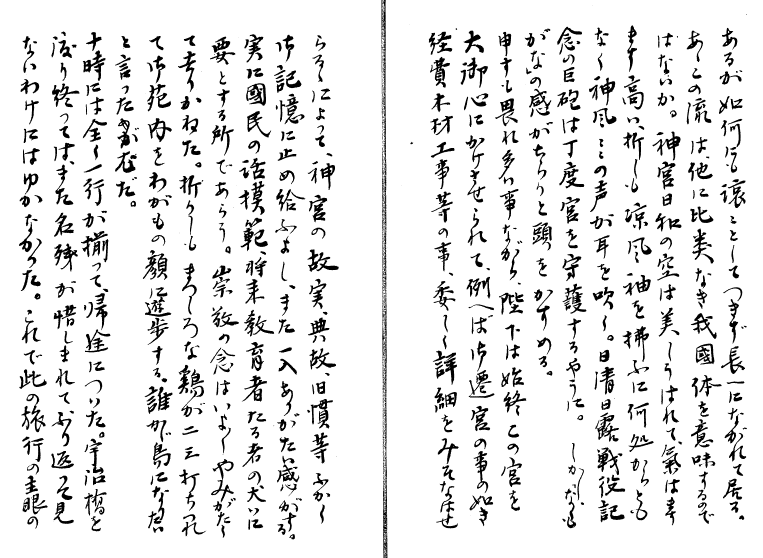 あるが如何にも讓々としてつきず長へにながれて居る。
あゝこの流は、他に比類なき我國体を意味するので
はないか。神宮日和の空は美しうはれて、氣はます
ます高い、折しも涼風袖を拂ふに何処からとも
なく神風々々の声が耳を吹く。日清日露戰役記
念の巨砲は丁度宮を守護するやうに。しかしながら
がなの感がちらりと頭をかすめる。
申すも畏れ多い事ながら、陛下は始終この宮を
大御心にかけさせられて、例へば御遷宮の事の如き
経費木材工事等の事、委しく詳細をみそなはせ
らるゝによって、神宮の故実、典故、旧慣等ふかく
御記憶に止め給ふよし、また一入ありがたい感がする。
実に國民の話模範、将来教育者たる者の大いに
要とする所であらう。崇敬の念はいよゝやみがたく
て去りかねた。折りしもまつしろな鶏が二三打ちつれ
て御苑内をわがもの顔に遊歩する。誰かが鳥になりたい
と言ったっけ。
十時には全く一行が揃って、帰途についた。宇治橋を
渡り終っては、また名残が惜しまれてふり返って見
ないわけにはゆかなかった。これで此の旅行の主眼の